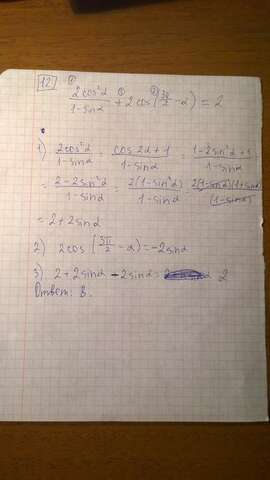 12.
① ② ③
2cos²α/(1-sinα) + 2cos(3π/2 - α) = 2
1) 2cos²α/(1-sinα) = (cos2α+1)/(1-sinα) = (1-2sin²α+1)/(1-sinα)
= (2-2sin²α)/(1-sinα) = 2(1-sin²α)/(1-sinα) = 2(1-sinα)(1+sinα)/(1-sinα)
= 2+2sinα
2) 2cos(3π/2 - α) = -2sinα
3) 2+2sinα - 2sinα = 2
Ответ: В.